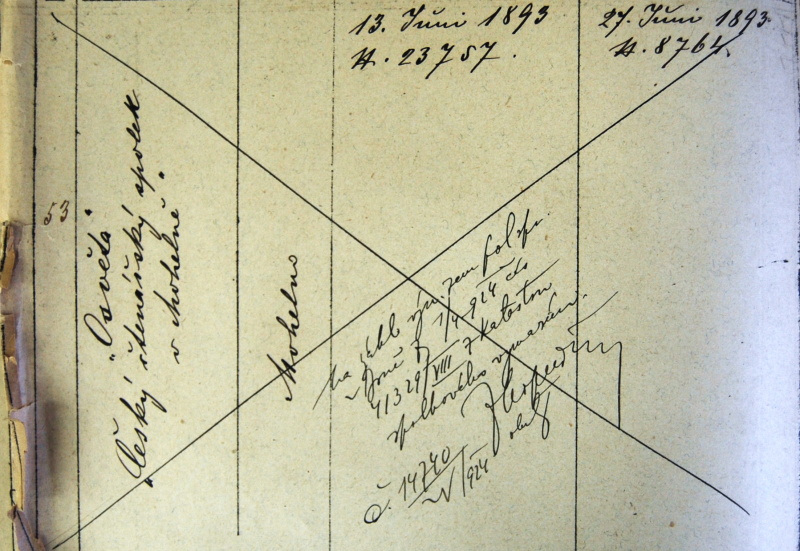 53
"Osvěta"
"Český čtenářský spolek
v Mohelně"
Mohelno
13. Juni 1893
N. 23757.
27. Juni 1893
N. 8764
na zákl. výn. zem. pol. spr.
v Brně z 1/4 924 čís
41329/VIII z katastru
spolkového vymazán.
č. 14740
IV/924